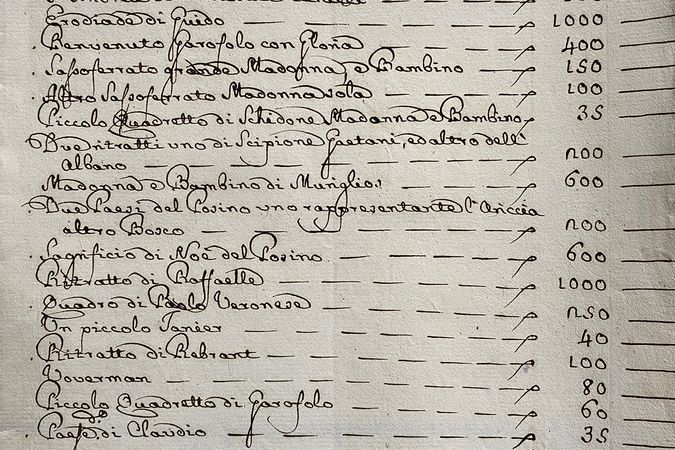 Erodiade di Guido — 1000
Benvenuto Garofolo con Gloria — 400
Sassoferrato grande Madonna, e Bambino — 150
Altro Sassoferrato Madonna sola — 100
Piccolo Quadretto di Schidone Madonna e Bambino 35
Due ritratti uno di Scipione Gaetani, ed altro dell'
Albano — 200
Madonna e Bambino di Muriglios — 600
Due Paesi del Posino uno rappresentante l'Ariccia
altro Bosco — 200
Sagrificio di Noè del Posino — 600
Ritratto di Raffaelle — 1000
Quadro di Paolo Veronese — 250
Un piccolo Tanier — 40
Ritratto di Rebrant — 100
Voverman — 80
Piccolo Quadretto di Garofolo — 60
Paese di Claudio — 35